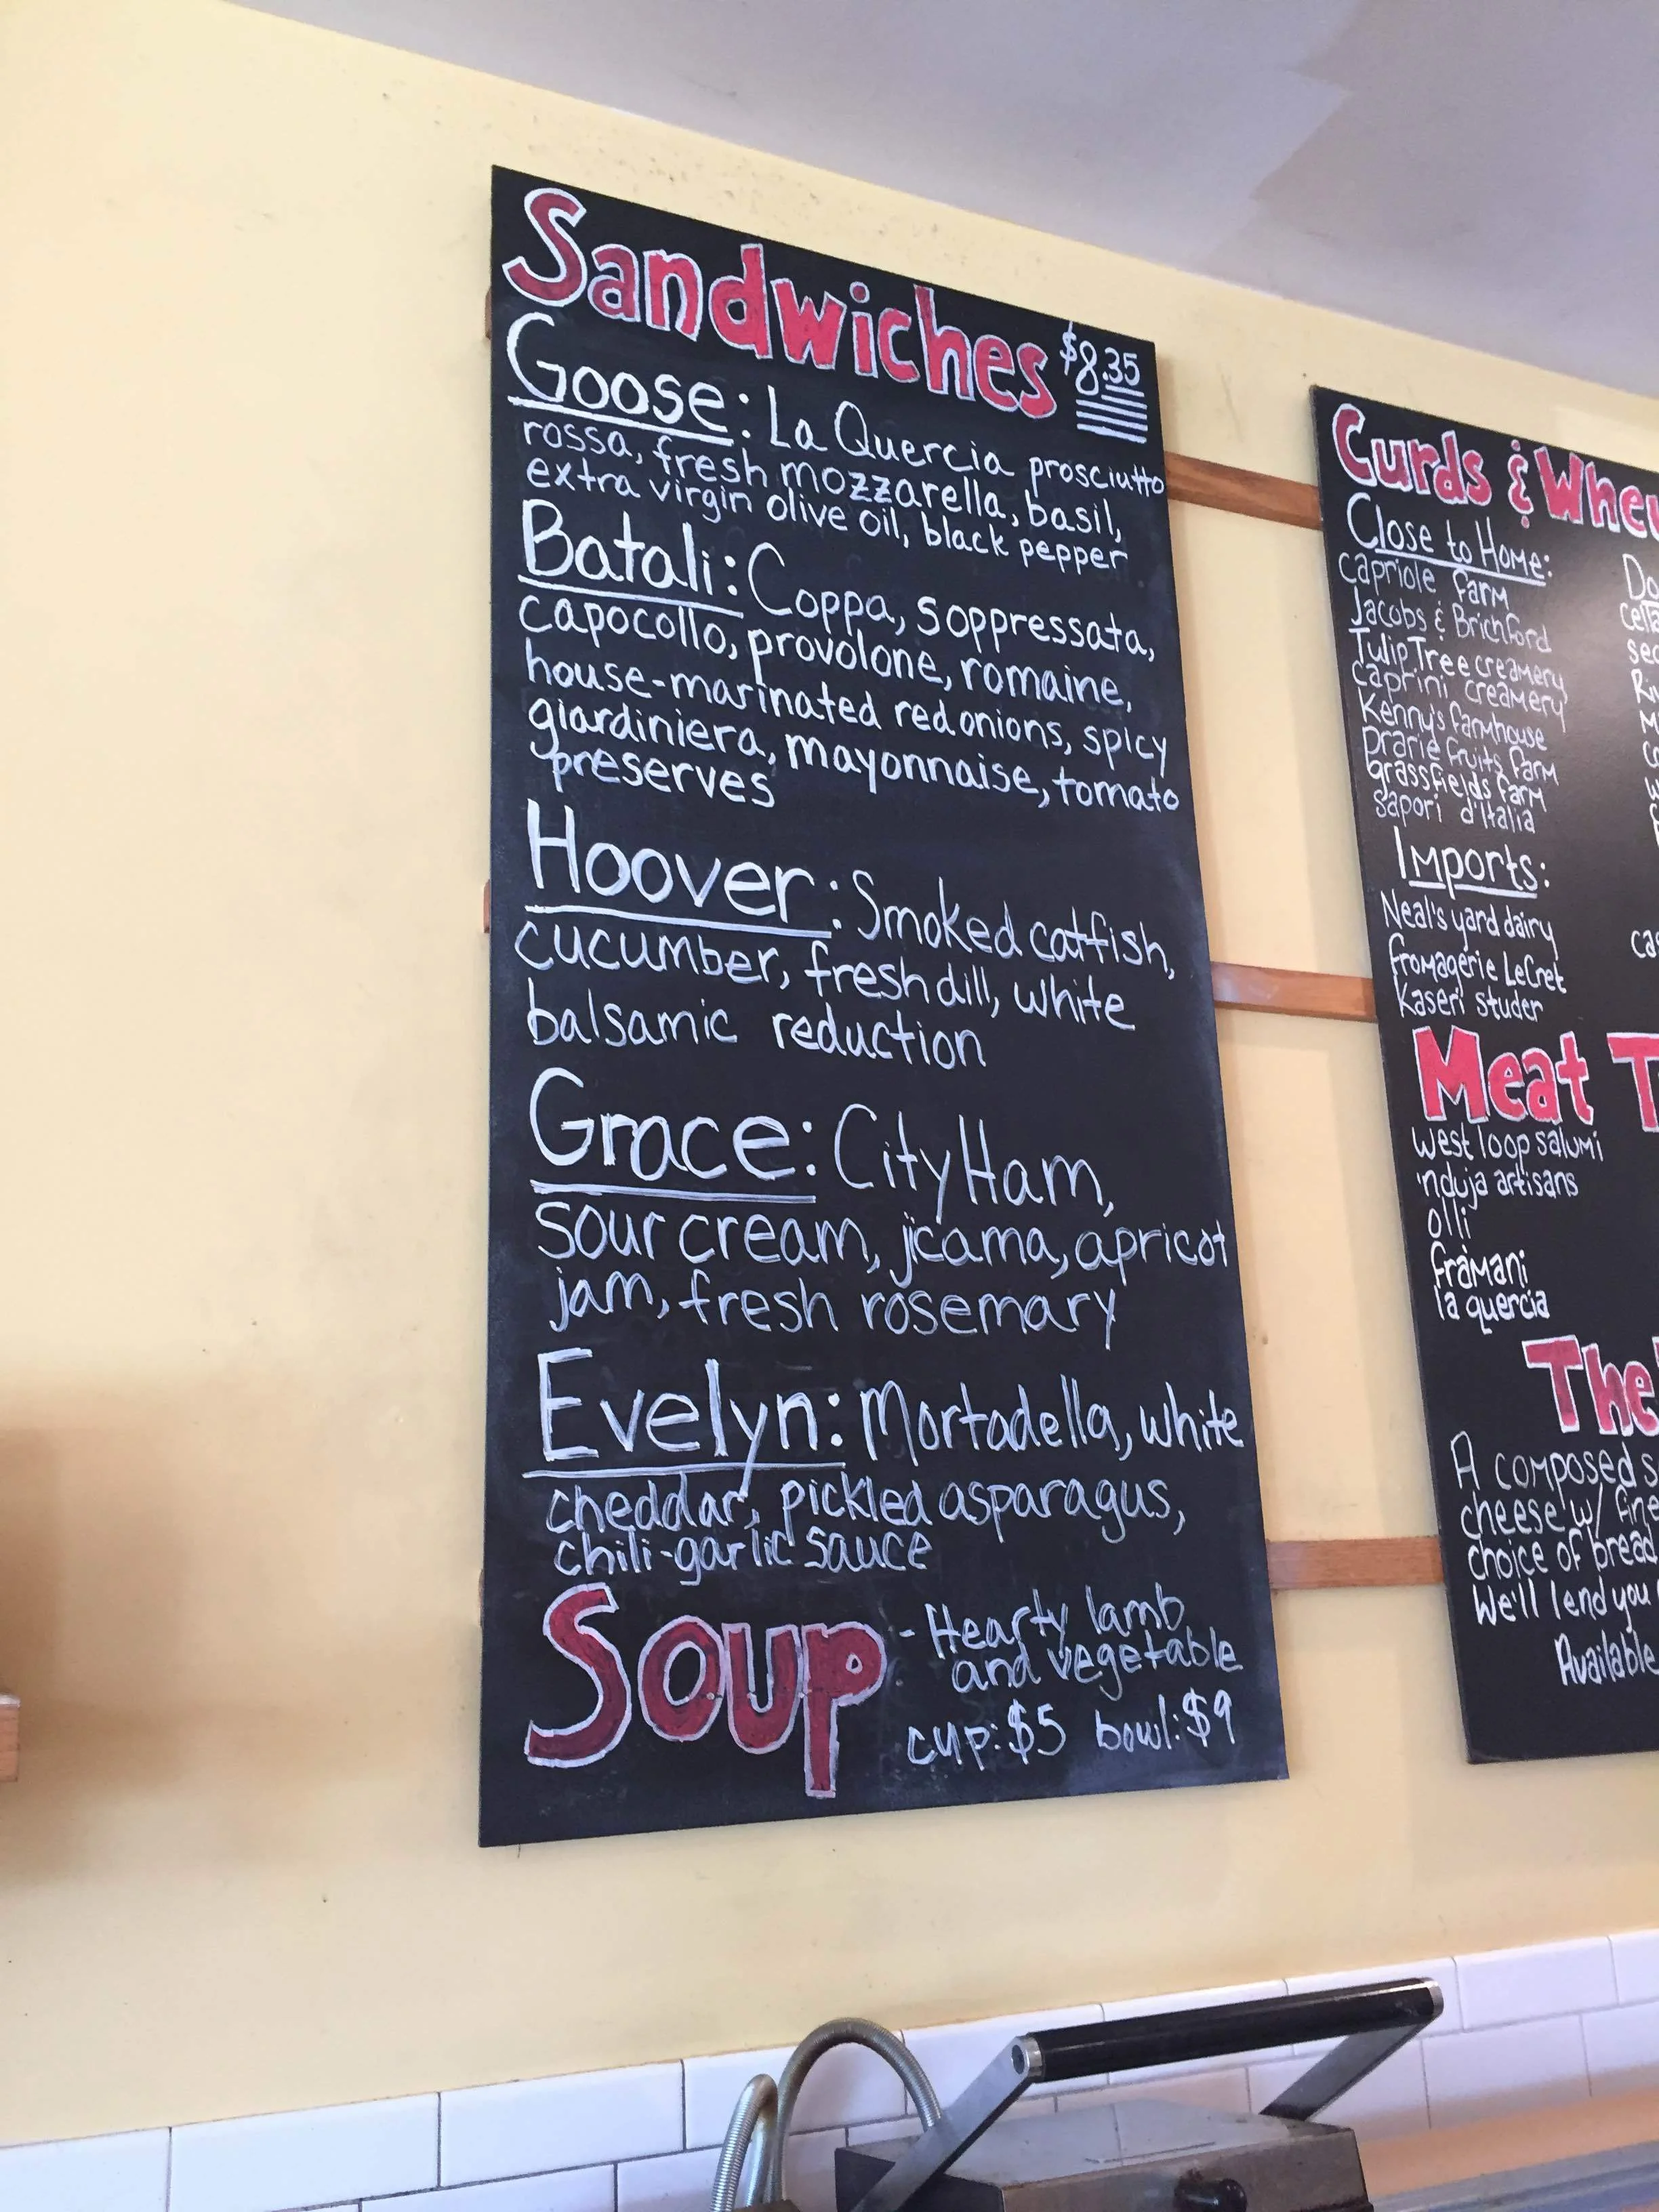 Sandwiches $8.35
Goose: La Quercia prosciutto
rossa, fresh mozzarella, basil,
extra virgin olive oil, black pepper
Batali: Coppa, soppressata,
capocollo, provolone, romaine,
house-marinated red onions, spicy
giardiniera, mayonnaise, tomato
preserves
Hoover: Smoked catfish,
cucumber, fresh dill, white
balsamic reduction
Grace: City Ham,
sour cream, jicama, apricot
jam, fresh rosemary
Evelyn: Mortadella, white
cheddar, pickled asparagus,
chili-garlic sauce
Soup - Hearty lamb
and vegetable
cup: $5 bowl: $9
Curds &
Close to Home:
capriole farm
Jacobs & Brichford
Tulip Tree creamery
caprini creamery
Kenny's farmhouse
prarie fruits farm
grassfields farm
sapori d'Italia
Imports:
Neal's yard dairy
fromagerie LeCret
Kaseri studer
Meat
west loop salumi
'nduja artisans
olli
fràmani
la quercia
The
A composed
cheese w/
choice of bread
We'll lend you
Available